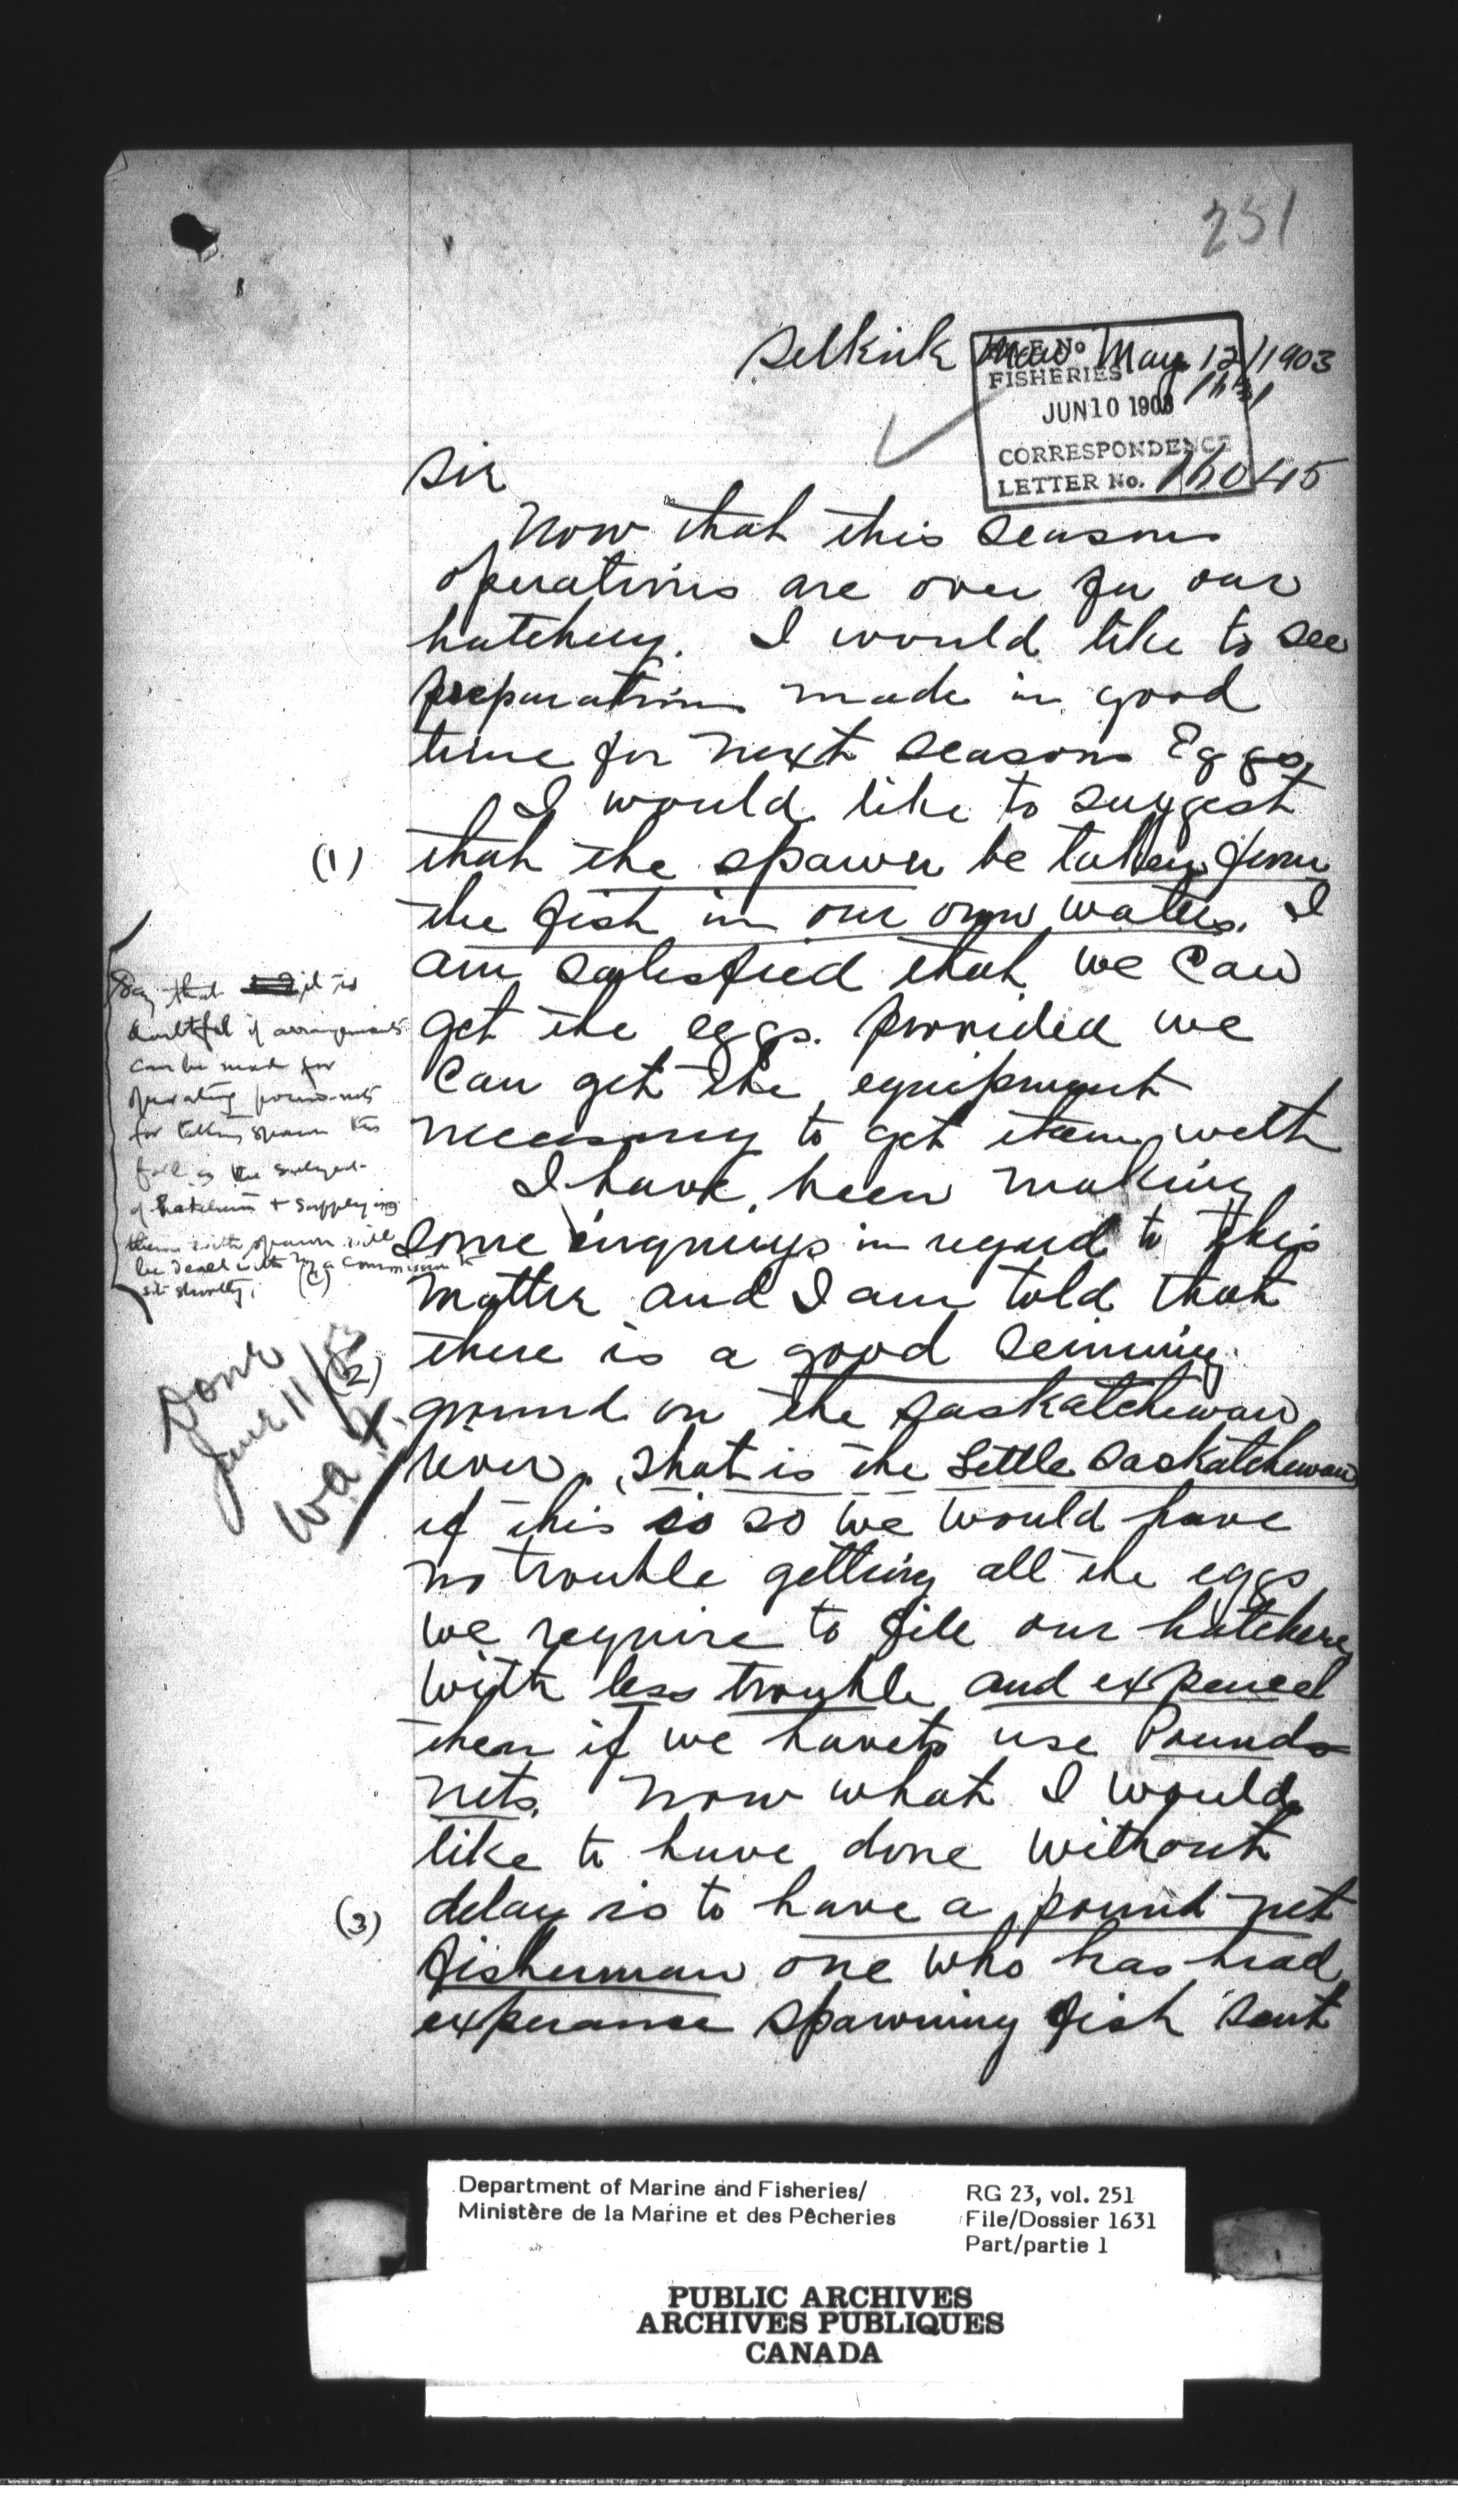 231
Selkirk Man May 12/1903
FILE No
FISHERIES
JUN 10 1903
CORRESPONDENCE
LETTER No. 16045
Sir
Now that this seasons
operations are over for our
hatchery. I would like to see
preparations made in good
time for next seasons Eggs,
I would like to suggest
(1) that the spawn be taken from
the fish in our own waters. I
am satisfied that we can
get the eggs. provided we
can get the equipment
necessary to get them with
I have been making
some inquirys in regard to this
matter and I am told that
there is a good seinning
(2) ground on the Saskatchewan
river, that is the Little Saskatchewan
if this is so we would have
no trouble getting all the eggs
we require to fill our hatchery
with less trouble and expence
then if we have to use Pound
nets. Now what I would
like to have done without
delay is to have a pound net
(3) fisherman one who has had
experance spawning fish sent
Say that it is
doubtful if arrangements
can be made for
operating pound-nets
for taking spawn this
fall as the subject
of hatcheries & supplying
them with spawn will
be dealt with by a Commission to
sit shortly.
Done
June 11/03
Department of Marine and Fisheries/
Ministère de la Marine et des Pêcheries
RG 23, vol. 251
File/Dossier 1631
Part/partie 1
PUBLIC ARCHIVES
ARCHIVES PUBLIQUES
CANADA